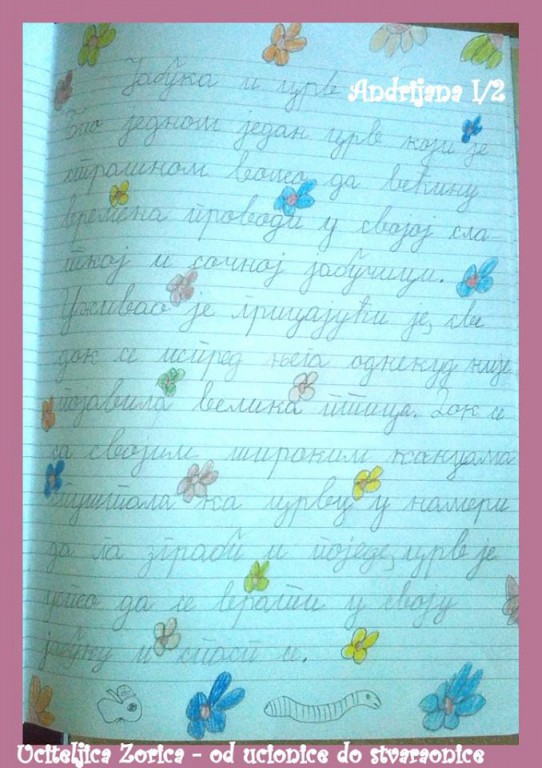 Јабука и црв
Andrijana I/2
Био једном један црв који је
страшном волео да већину
времена проводи у својој сла-
ткој и сочној јабучици.
Уживао је грицајући је, све
док се испред њега однекуд није
појавила велика птица. Док се
са својим широким канџама
пуштала ка црву у намери
да га зграби и поједе, црв је
успео да се врати у своју
јабуку и спаси се.
Uciteljica Zorica - od ucionice do stvaraonice